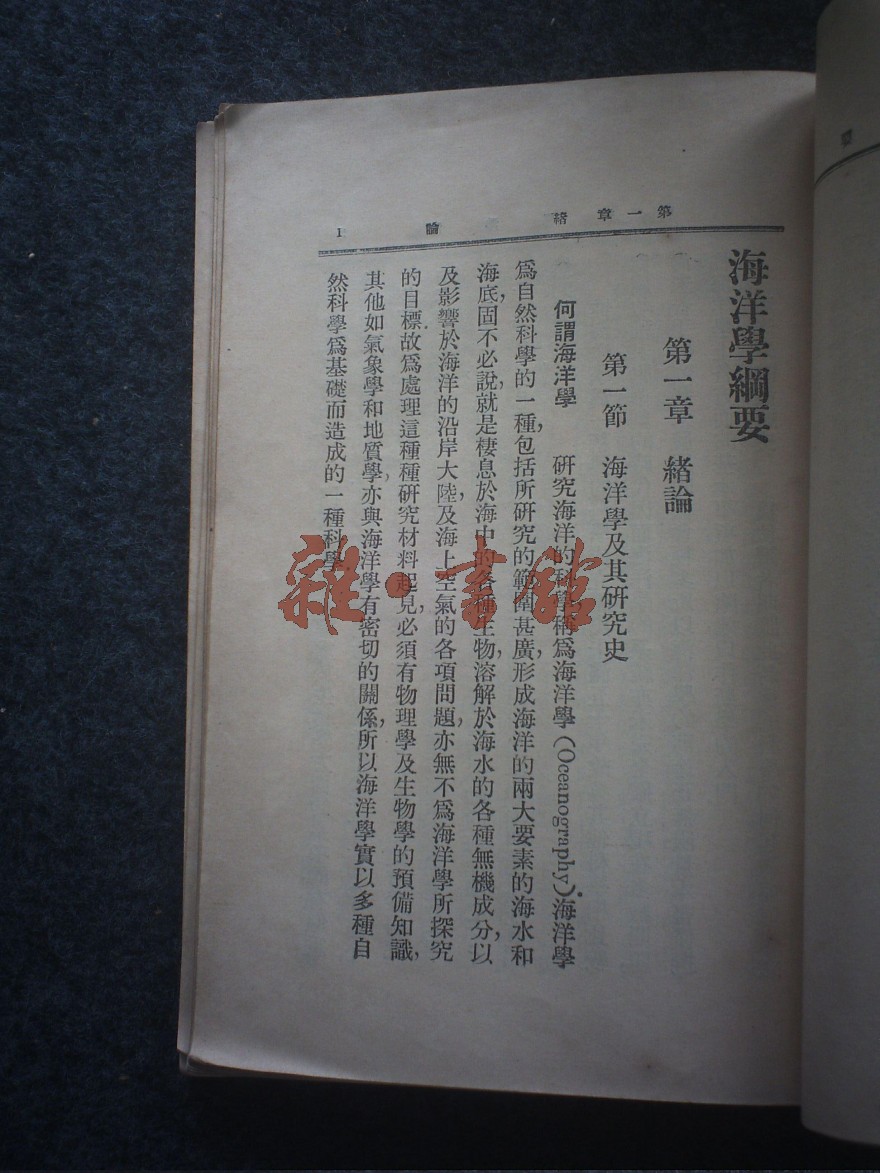 第一章 緒 論 1
海洋學綱要
第一章 緒論
第一節 海洋學及其研究史
何謂海洋學 研究海洋的科學稱爲海洋學(Oceanography)。海洋學
爲自然科學的一種,包括所研究的範圍甚廣,形成海洋的兩大要素的海水和
海底,固不必說,就是棲息於海中的各種生物,溶解於海水的各種無機成分,以
及影響於海洋的沿岸大陸,及海上空氣的各項問題,亦無不爲海洋學所探究
的目標。故爲處理這種種研究材料起見,必須有物理學及生物學的預備知識,
其他如氣象學和地質學,亦與海洋學有密切的關係,所以海洋學實以多種自
然科學爲基礎而造成的一種科學。
雜·書館